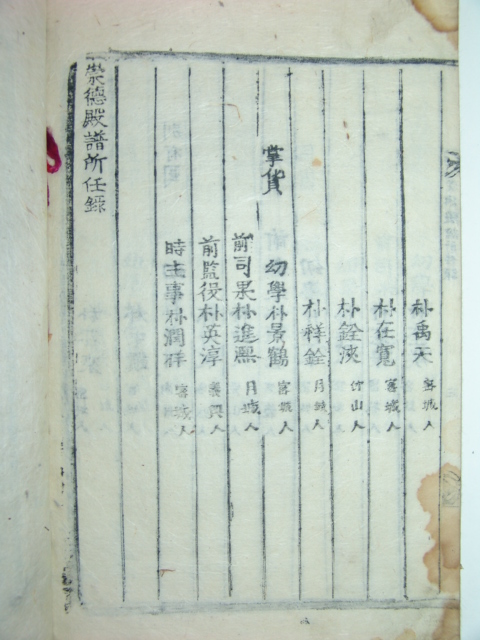 朴禹天 密城人
朴在寬 密城人
朴銓浹 竹山人
朴祥銓 月城人
掌貨
幼學朴景鶴 密城人
前司果朴進凞 月城人
前監役朴英淳 咸興人
時主事朴潤祥 密城人
崇德殿譜所任錄